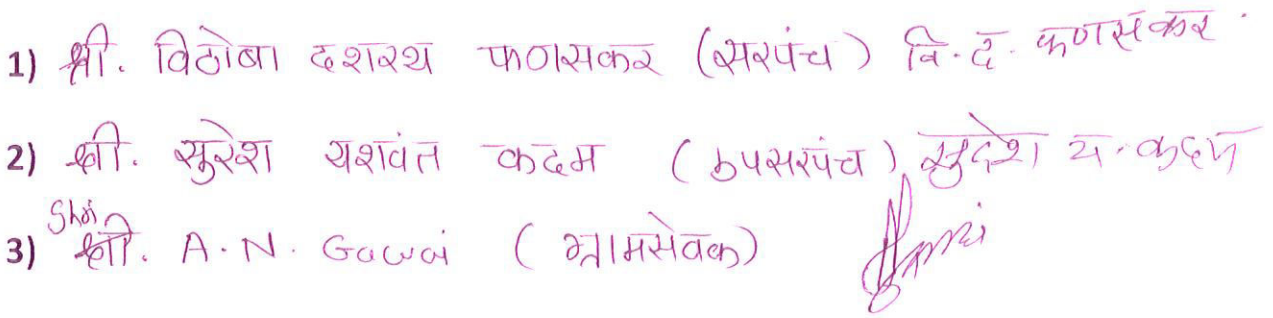 1) श्री. विठोबा दशरथ फणसकर (सरपंच) वि.द. फणसकर
2) श्री. सुरेश यशवंत कदम (उपसरपंच) सुरेश य. कदम
3) Shri श्री. A.N. Gawai (ग्रामसेवक)